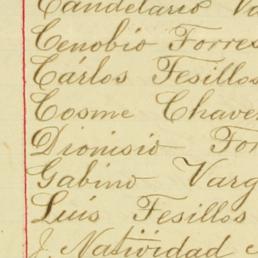 Candelario Va
Cenobio Torres
Cárlos Tesillos
Cosme Chaves
Dionisio Tor
Gabino Varg
Luis Tesillos
J. Natividad